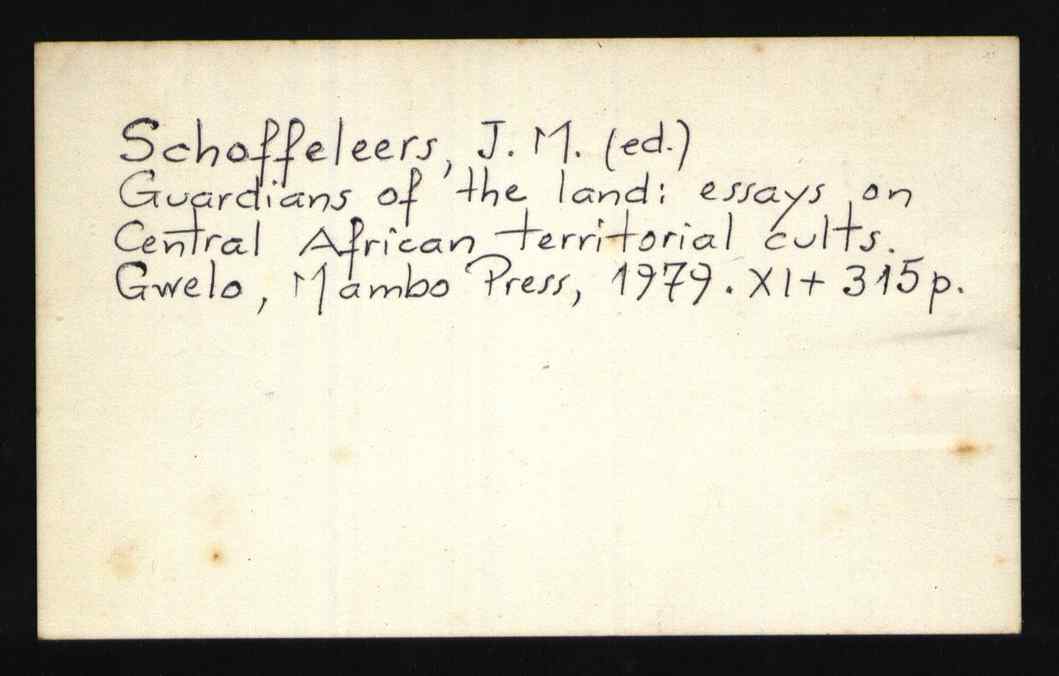 Schoffeleers, J. M. (ed.)
Guardians of the land: essays on
Central African territorial cults.
Gwelo, Mambo Press, 1979. XI+ 315p.